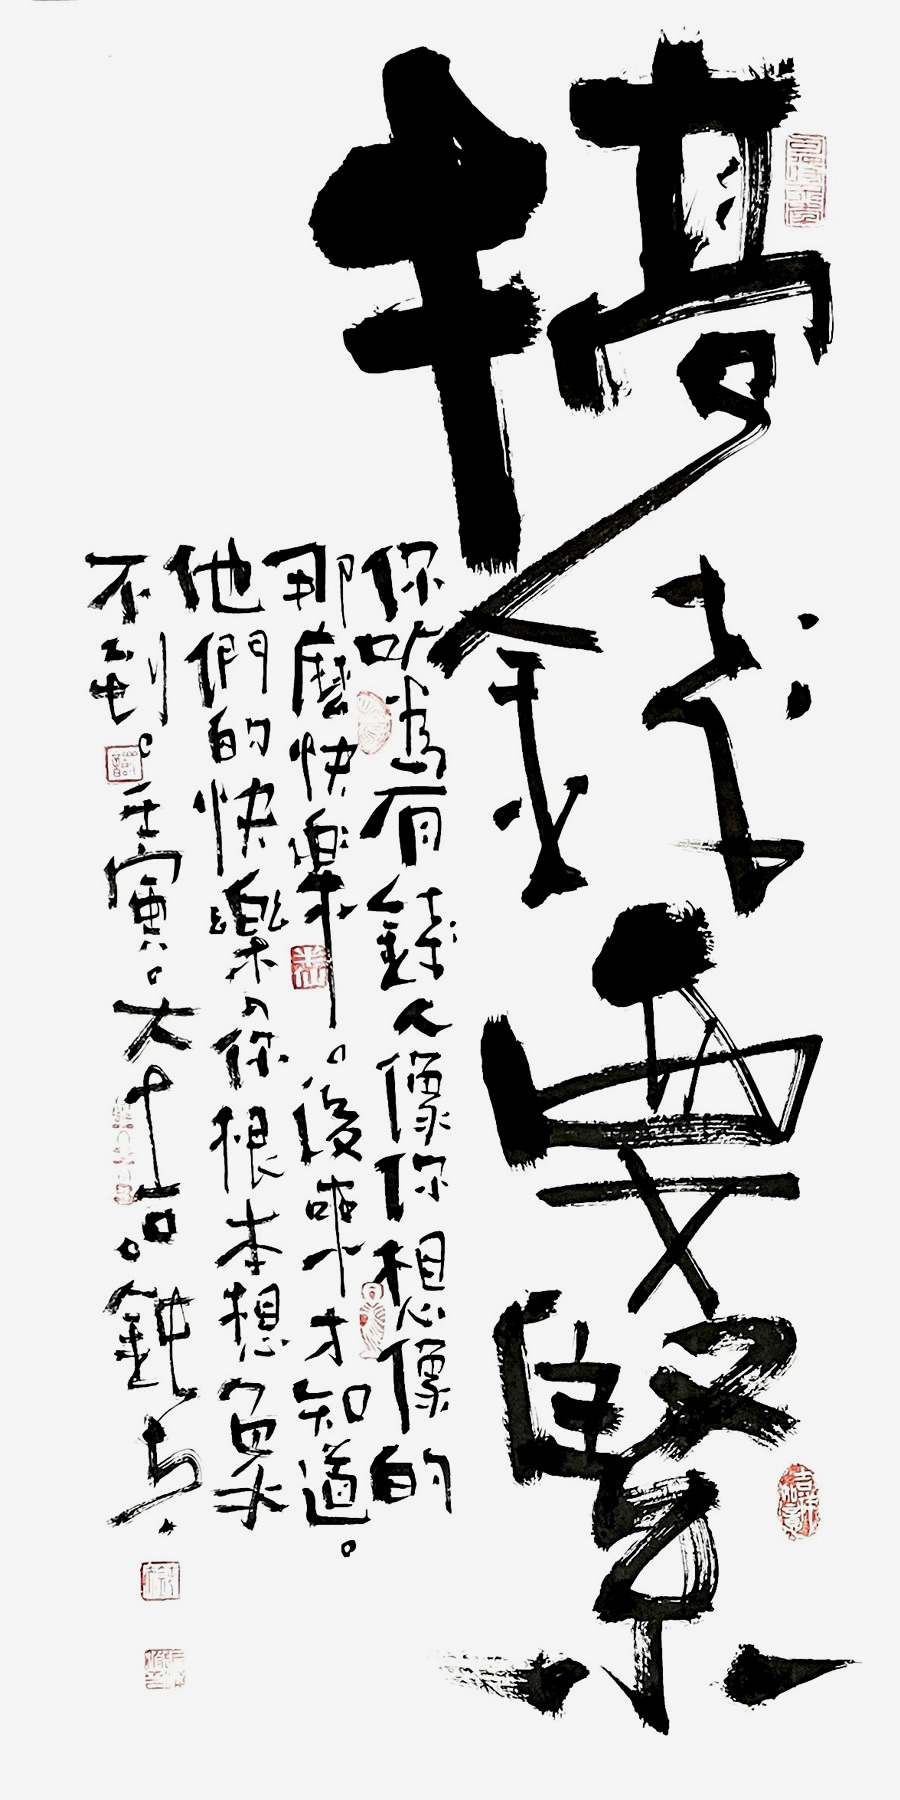 搞錢要緊
你以為有錢人像你想像的
那麼快樂。後來才知道。
他們的快樂、你根本想象
不到。壬寅。大